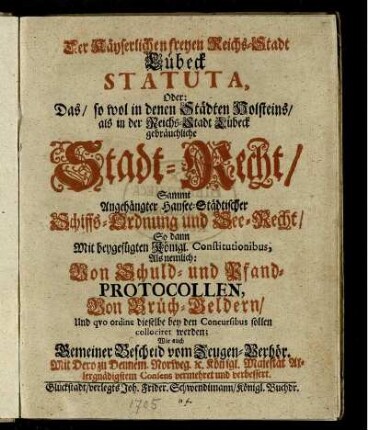 Der Käyserlichen freyen Reichs-Stadt
Lübeck
STATUTA,
Oder:
Das/ so wol in denen Städten Holsteins/
als in der Reichs-Stadt Lübeck
gebräuchliche
Stadt-Recht/
Sammt
Angehängter Hansee-Städtischer
Schiffs-Ordnung und See-Recht/
So dann
Mit beygefügten Königl. Constitutionibus,
Als nemlich:
Von Schuld- und Pfand-
PROTOCOLLEN,
Von Brüch-Geldern/
Und qvo ordine dieselbe bey den Concursibus sollen
collociret werden;
Wie auch
Gemeiner Bescheid vom Zeugen-Verhör.
Mit Dero zu Dennem. Norweg. ꝛc. Königl. Majestät Al-
lergnädigstem Consens vermehret und verbessert.
Glückstadt/ verlegts Joh. Frider. Schwendimann/ Königl. Buchdr.
1705